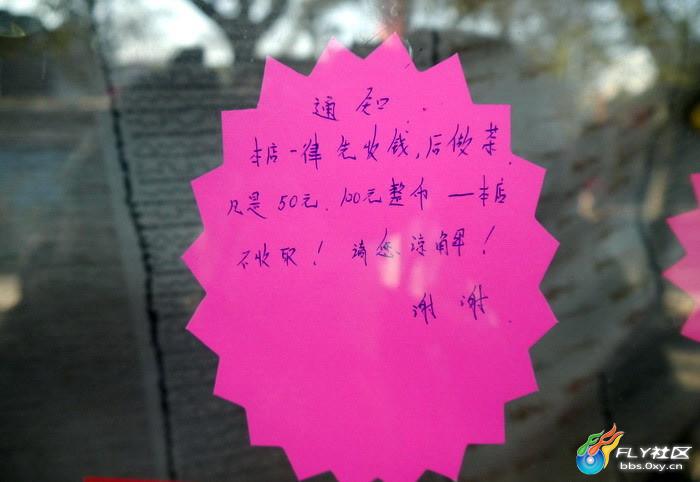 通知.
本店一律先收钱,后做菜.
凡是50元、100元整币一本店
不收取！请您谅解！
谢谢.
FLY社区
bbs.0xy.cn